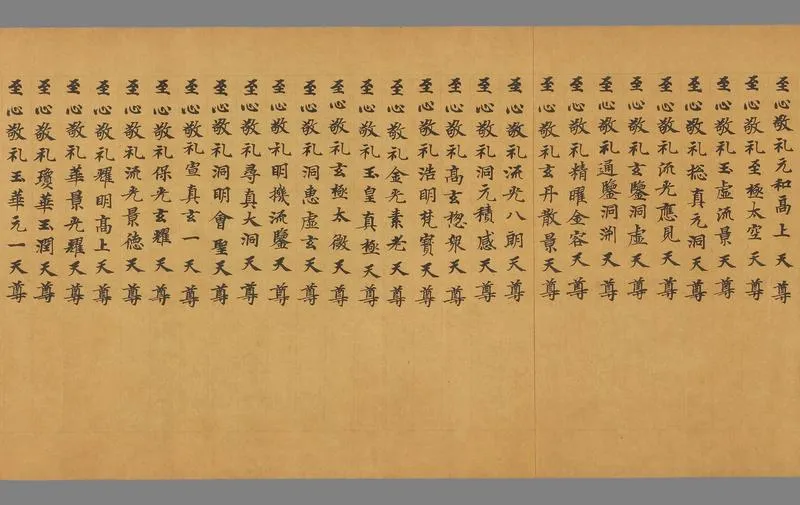 至心敬礼元和高上天尊
至心敬礼至極太空天尊
至心敬礼玉虛流景天尊
至心敬礼捴真元洞天尊
至心敬礼流光應見天尊
至心敬礼玄鑒洞虛天尊
至心敬礼通鑒洞渕天尊
至心敬礼精曜金容天尊
至心敬礼玄丹散景天尊
至心敬礼流光八朗天尊
至心敬礼洞元積感天尊
至心敬礼高玄惚架天尊
至心敬礼浩明梵寶天尊
至心敬礼金光素老天尊
至心敬礼玉皇真極天尊
至心敬礼玄極太微天尊
至心敬礼洞惠虛玄天尊
至心敬礼明機流鑒天尊
至心敬礼尋真大洞天尊
至心敬礼洞明會聖天尊
至心敬礼宣真玄一天尊
至心敬礼保光玄耀天尊
至心敬礼流光景德天尊
至心敬礼耀明高上天尊
至心敬礼華景光耀天尊
至心敬礼瓊華玉潤天尊
至心敬礼玉華元一天尊